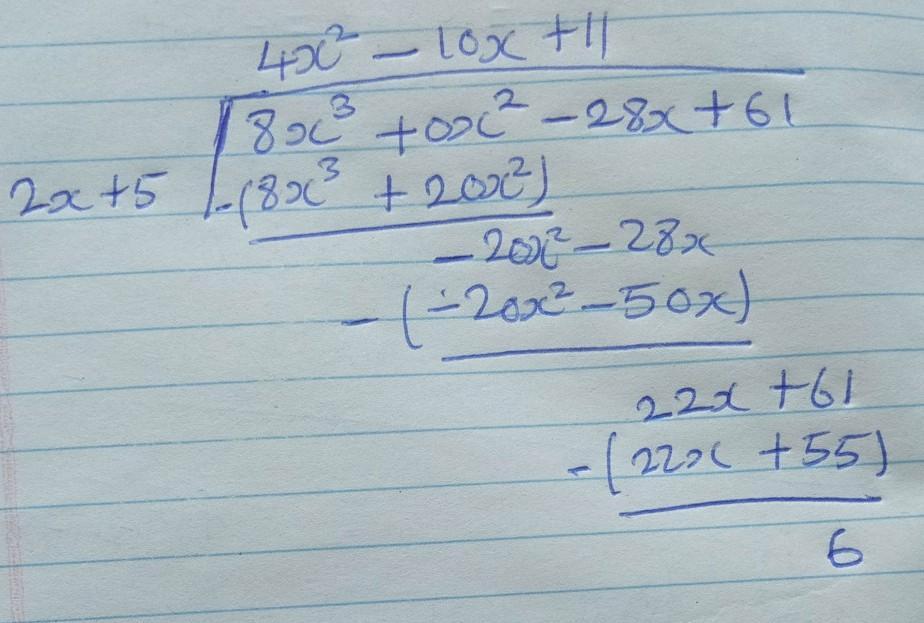 4x² - 10x + 11
8x³ + 0x² - 28x + 61
2x + 5 -(8x³ + 20x²)
- 20x² - 28x
- (-20x² - 50x)
22x + 61
- (22x + 55)
6